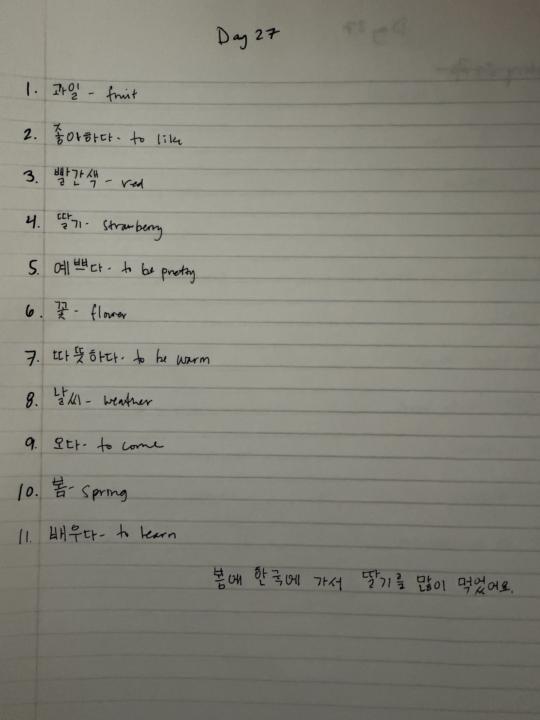 Day 27
1. 과일 - fruit
2. 좋아하다 - to like
3. 빨간색 - red
4. 딸기 - strawberry
5. 예쁘다 - to be pretty
6. 꽃 - flower
7. 따뜻하다 - to be warm
8. 날씨 - weather
9. 오다 - to come
10. 봄 - spring
11. 배우다 - to learn
봄에 한국에 가서 딸기를 많이 먹었어요.